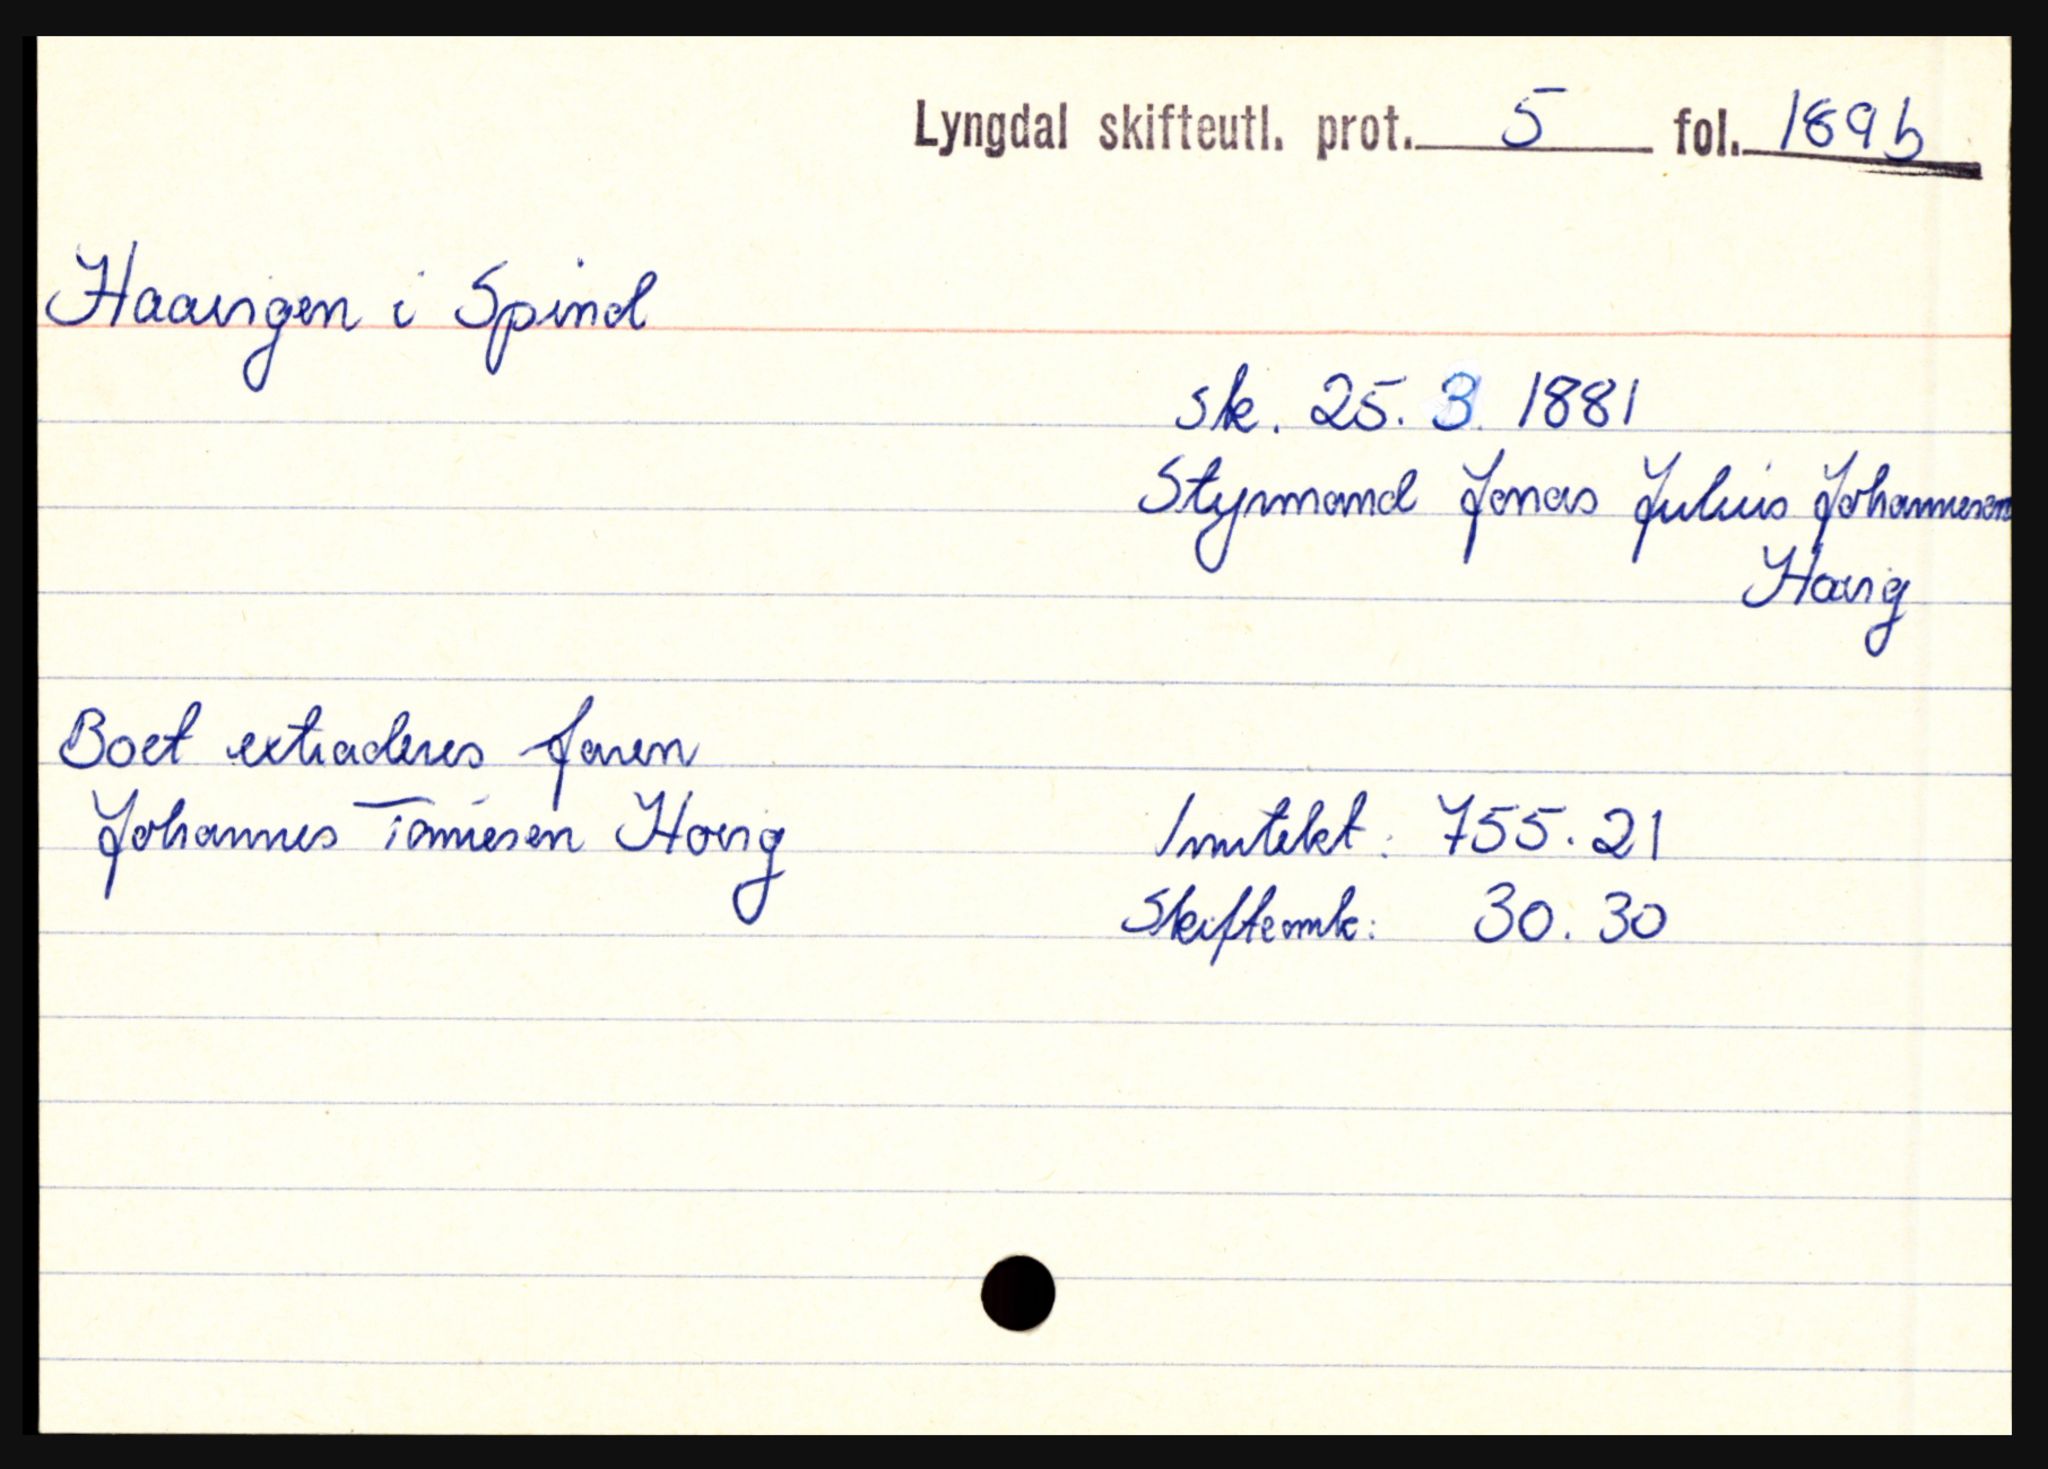 Lyngdal skifteutl. prot. 5 fol. 189b
Haavigen i Spind
sk. 25. 3. 1881
Styrmand Jonas Julius Johannesen
Havig
Boet extraderes faren
Johannes Tønnesen Hovig
Inntekt: 755.21
Skifteomk: 30.30